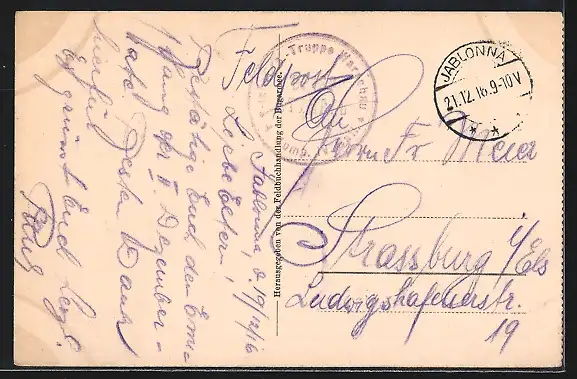 Feldpost
Jablonna, d. 19/12/16
Liebe Eltern!
Bestätige Euch den Em-
pfang der II Dezember-
rate. Besten Dank
hierfür
Es grüsst Euch herzl.
Herausgegeben von der Feldbuchhandlung der Bugarmee
-Truppe War
JABLONNA
21.12.16.9-10V
An
Herrn Fr Meier
Strassburg i/Els
Ludwigshafenerstr.
19